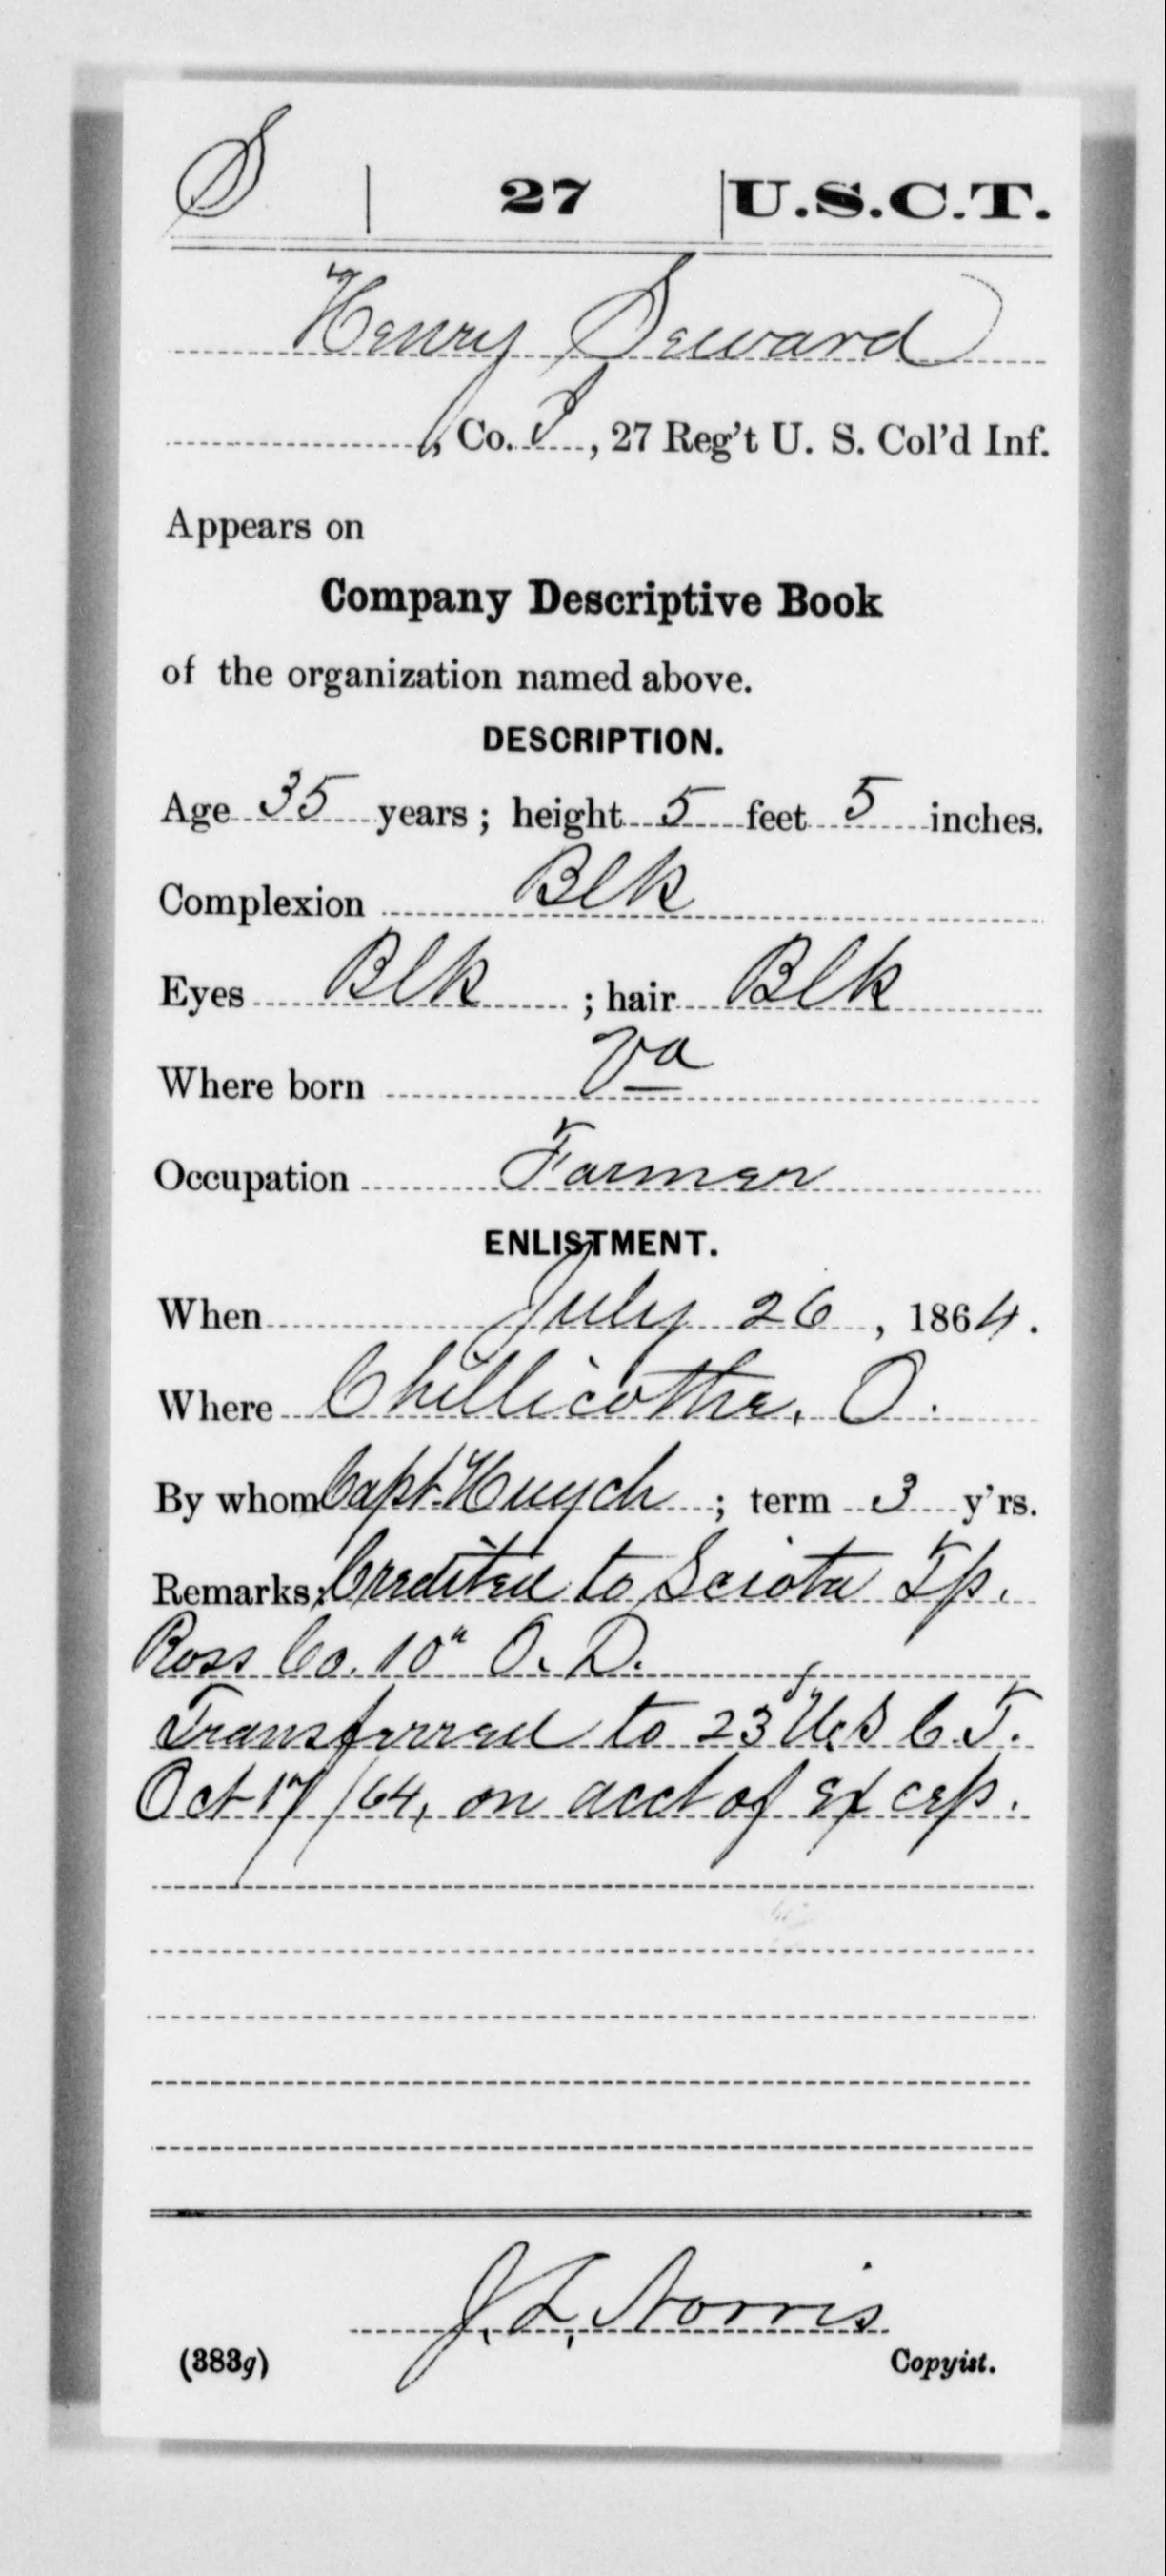 S | 27 | U.S.C.T.
Henry Seward
, Co. I, 27 Reg't U. S. Col'd Inf.
Appears on
Company Descriptive Book
of the organization named above.
DESCRIPTION.
Age 35 years; height 5 feet 5 inches.
Complexion Blk
Eyes Blk ; hair Blk
Where born Va
Occupation Farmer
ENLISTMENT.
When July 26, 1864.
Where Chillicothe, O.
By whom Capt. ; term 3 y'rs.
Remarks: Credited to Sciota Tp.
Ross Co. 10" O. D.
Transferred to 23 U.S.C.T.
Oct 17/64, on acct of
J. L. Norris
(383g) Copyist.